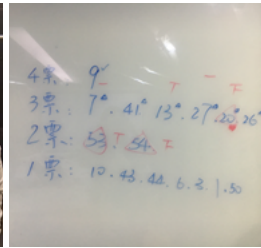 4票: 9
3票: 7. 41. 13. 27. 20. 26
2票: 53 T 54 T
1票: 10. 43. 44. 6. 3. 1. 50